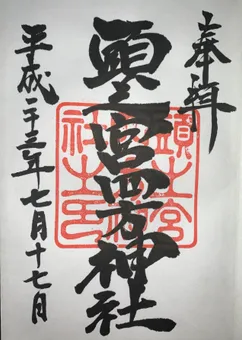 奉拝
頭之宮四方神社
平成二十三年七月十七日